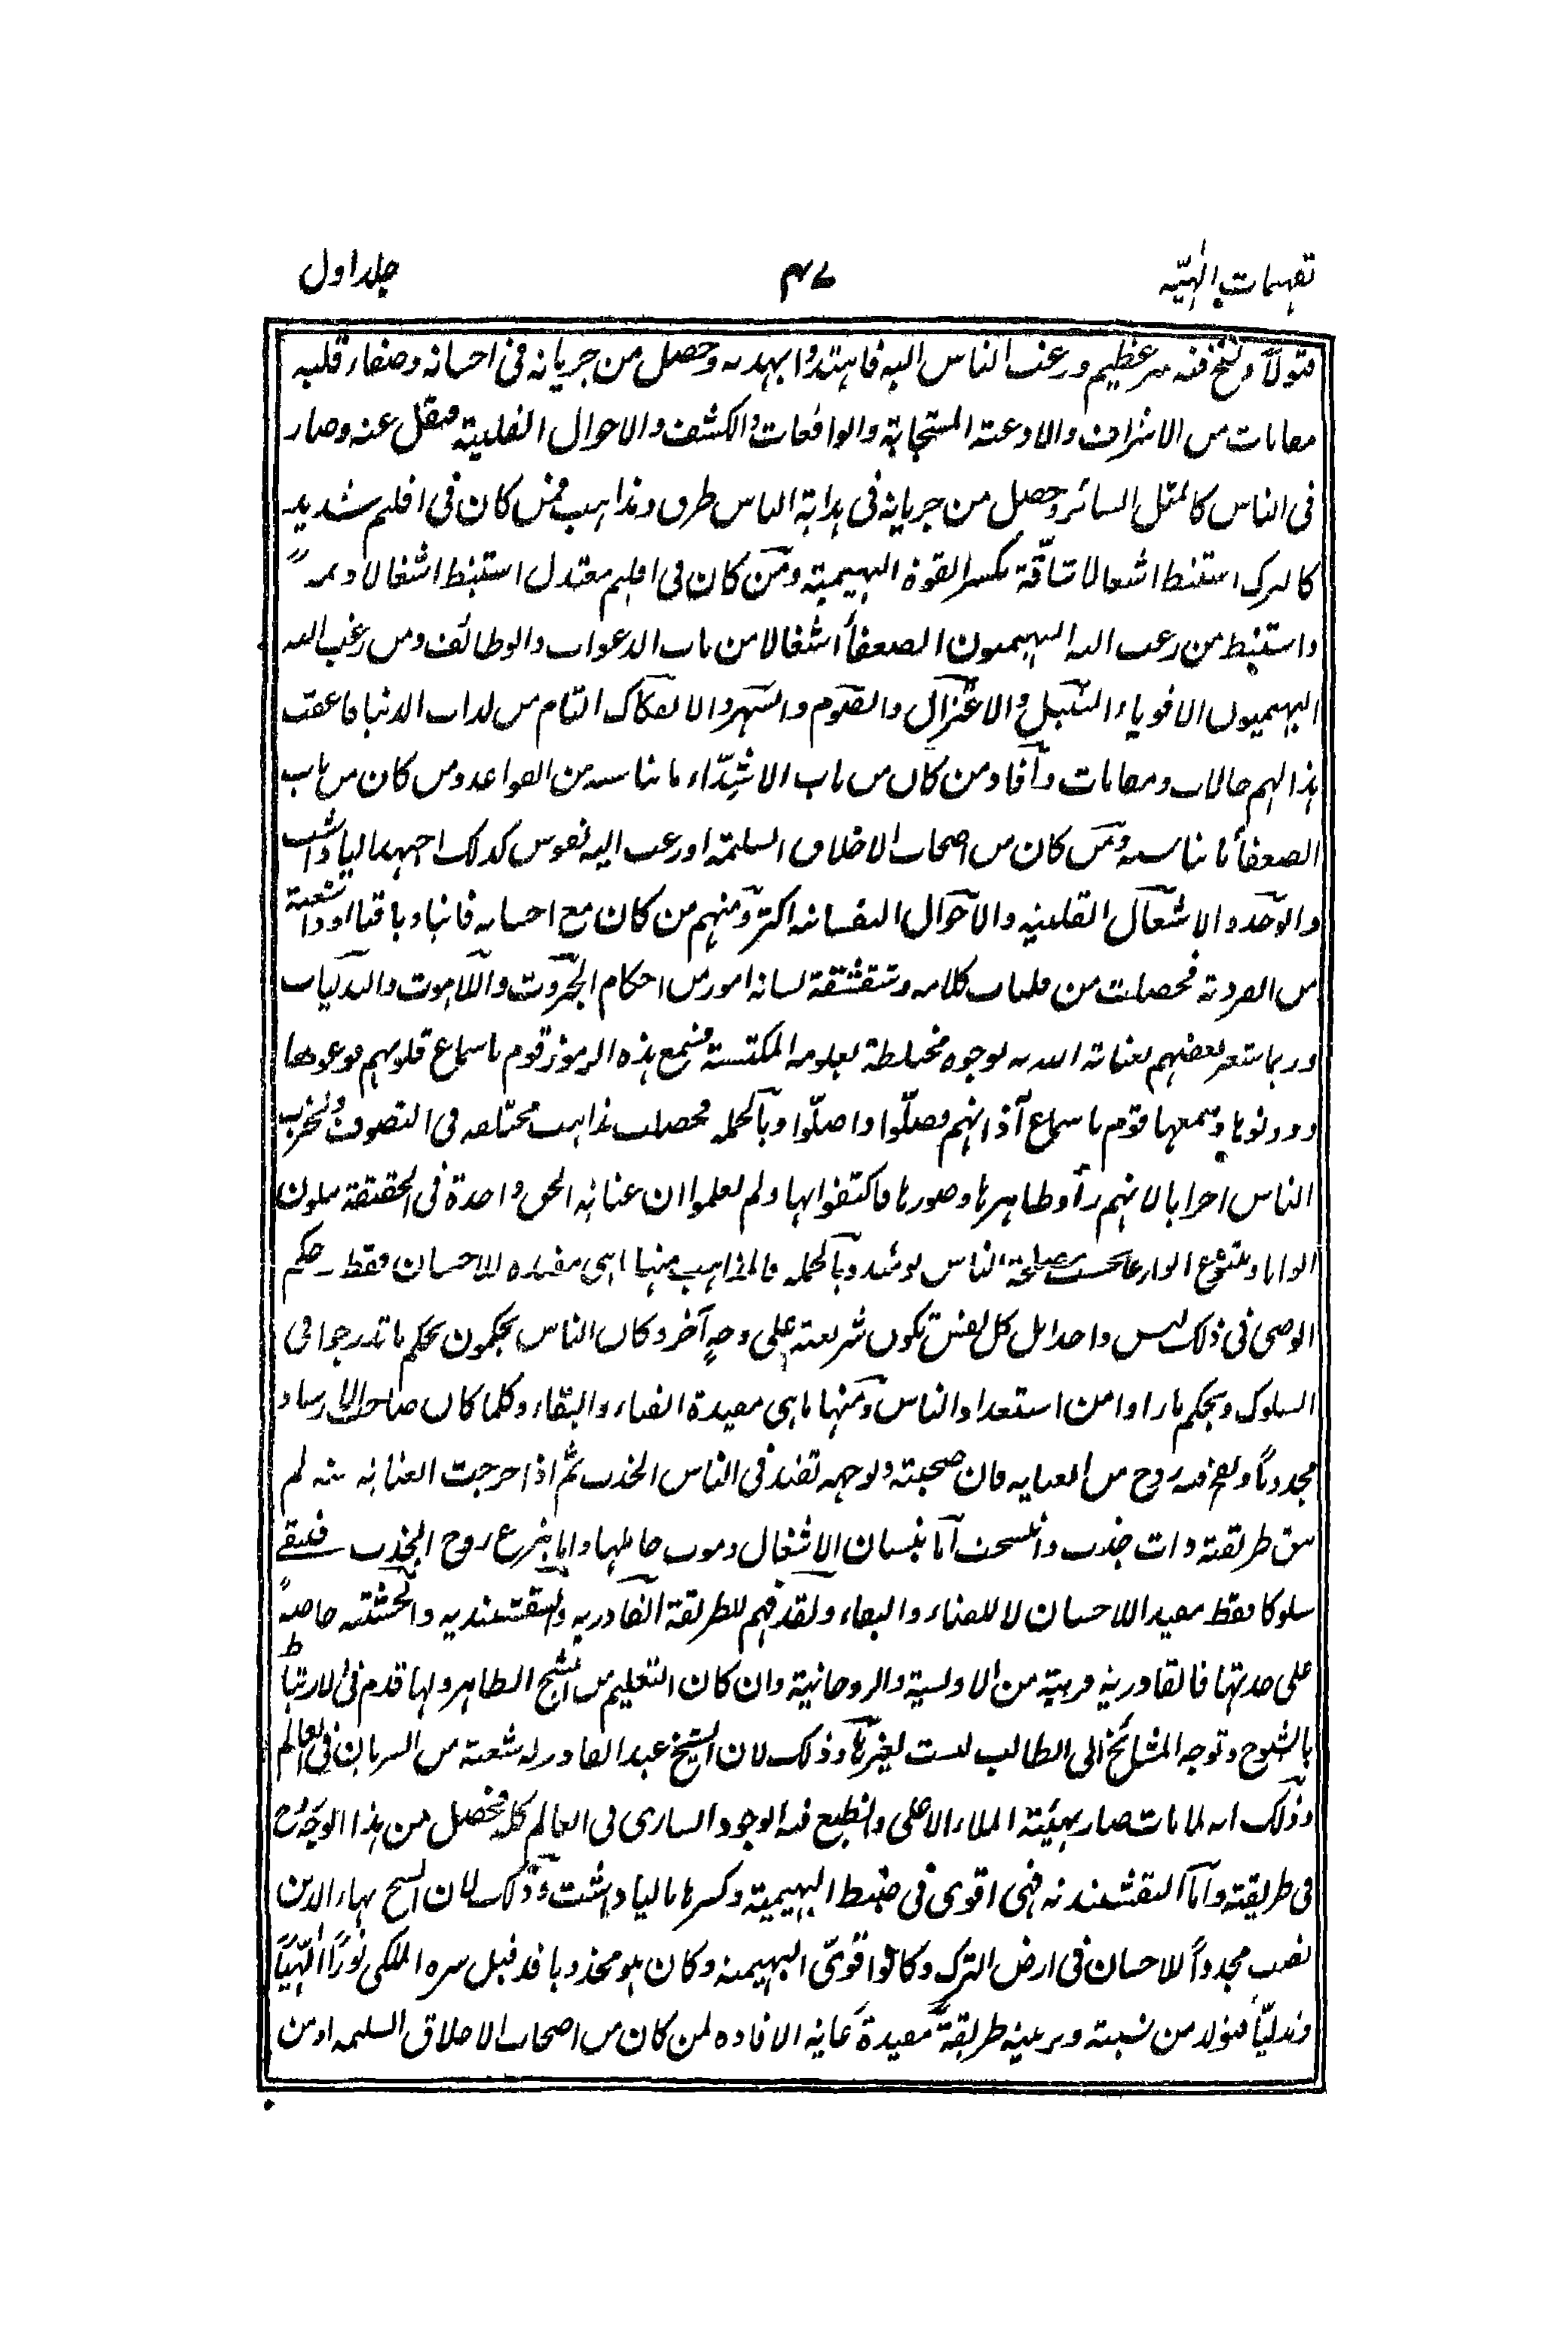 تفہیمات الٰہیّہ
۴۷
جلد اول
قبولاً ونفخ فيه سر عظيم ورغب الناس اليه فاهتدوا بهديه وحصل من جريانه فى احسانه وصفاء قلبه
مقامات من الاشراف والادعية المستجابة والواقعات والكشف والاحوال القلبية فنقل عنه وصار
فى الناس كالمثل السائر وحصل من جريانه فى هداية الناس طرق ومذاهب فمن كان فى اقليم شديد
كالترك استنبط اشغالا شاقّة لكسر القوة البهيمية ومن كان فى اقليم معتدل استنبط اشغالا
واستنبط من رغب اليه البهيميون الضعفاء اشغالا من باب الدعوات والوظائف ومن رغب اليه
البهيميون الاقوياء التبتل والاعتزال والصوم والسهر والانفكاك التام من لذات الدنيا فاعقب
هذا لهم حالات ومقامات وافاد من كان من باب ما يناسبه من القواعد ومن كان من باب
الضعفاء ما يناسبه ومن كان من اصحاب الاخلاق السليمة او رغب اليه نفوس كذلك
والاشغال القلبية والاحوال النفسانية اكثر ومنهم من كان مع احسانه فانيا وباقيا او ذا شعبة
من الفردية فحصلت من كلامه وشقشقة لسانه امور من احكام الجبروت واللاهوت والتدليات
وربما بعضهم بعناية الله به بوجوه مختلطة بعلومه المكتسبة فسمع هذه الرموز قوم باسماع قلوبهم فوعوها
وسمعها قوم باسماع آذانهم فضلّوا واضلّوا وبالجملة فحصلت مذاهب مختلفة فى التصوف وتحزب
الناس احزابا لانهم رأوا ظاهرها وصورها فاكتفوا بها ولم يعلموا ان عناية الحق واحدة فى الحقيقة
بحسب مصلحة الناس يومئذ وبالجملة فالمذاهب منها ما هى مفيدة للاحسان فقط حكم
فى ذلك ليس واحدا بل كل نفس تكون شريعته على وجهٍ آخر وكان الناس يحكمون بحكم ما تدرجوا فى
السلوك وبحكم ما راوا من استعداد الناس ومنها ما هى مفيدة الفناء والبقاء وكلما كان صاحب الارشاد
مجذوبًا ونفخ فيه روح من العناية فان صحبته وتوجهه تفيد فى الناس الجذب ثم اذا خرجت العناية منه لم
يبق طريقته ذات جذب وانسحت اما بنسيان الاشغال وموت حامليها واما بنزع روح الجذب فيبقى
سلوكا فقط مفيدا للاحسان لا للفناء والبقاء ولقد فهم للطريقة القادرية والنقشبندية والچشتية خاصةً
على حدتها فالقادرية قريبة من الاويسية والروحانية وان كان التعليم من الشيخ الظاهر ولها قدم فى الارتباط
بالشيوخ وتوجه المشائخ الى الطالب ليست لغيرها وذلك لان الشيخ عبد القادر له شعبة من السريان فى العالم
وذلك انه لما مات صار بهيئة الملاء الاعلى وانطبع فيه الوجود السارى فى العالم كله فحصل من هذا الوجه روح
فى طريقته واما النقشبندية فهى اقوى فى ضبط البهيمية وكسرها بالياد داشت وذلك لان الشيخ بهاء الدين
نصب مجددا للاحسان فى ارض الترك وكانوا قوىّ البهيمية وكان هو مجذوبا قد قبل سره الملكى نورًا الٰهيًا
وتدليًا فتولد من نسبته ورعيته طريقةً مفيدةً غاية الافاده لمن كان من اصحاب الاخلاق السليمه او من